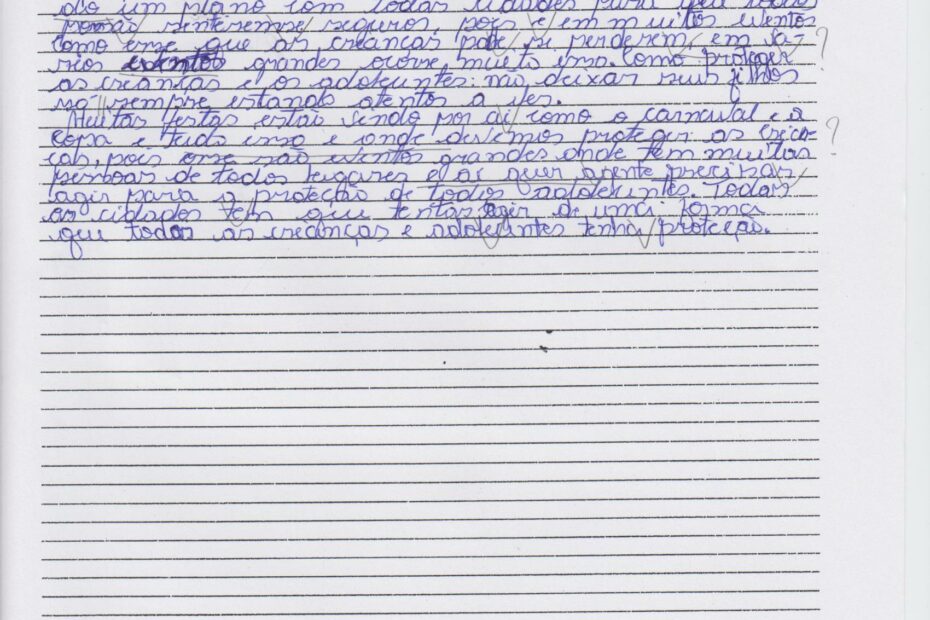 um plano com todas cidades para que todos
sentirem se seguros, pois é em muitos eventos
como esse que as crianças pode si perderem, em vá-
rios eventos grandes ocorre muito isso. Como proteger
as crianças e os adolecentes: não deixar seus filhos
sempre estando atentos a
Muitas festas estai vindo por ai, como o carnaval e a
copa e tudo isso e onde devemos proteger as
ças, pois esse são eventos grandes onde tem muitas
pessoas de todos lugares e as quer agente precisar
agir para a proteção de todos adolecentes. Todas
as cidades tem que tentar agir de uma forma
que todas as creanças e adolecentes tenha proteção.
? 
?